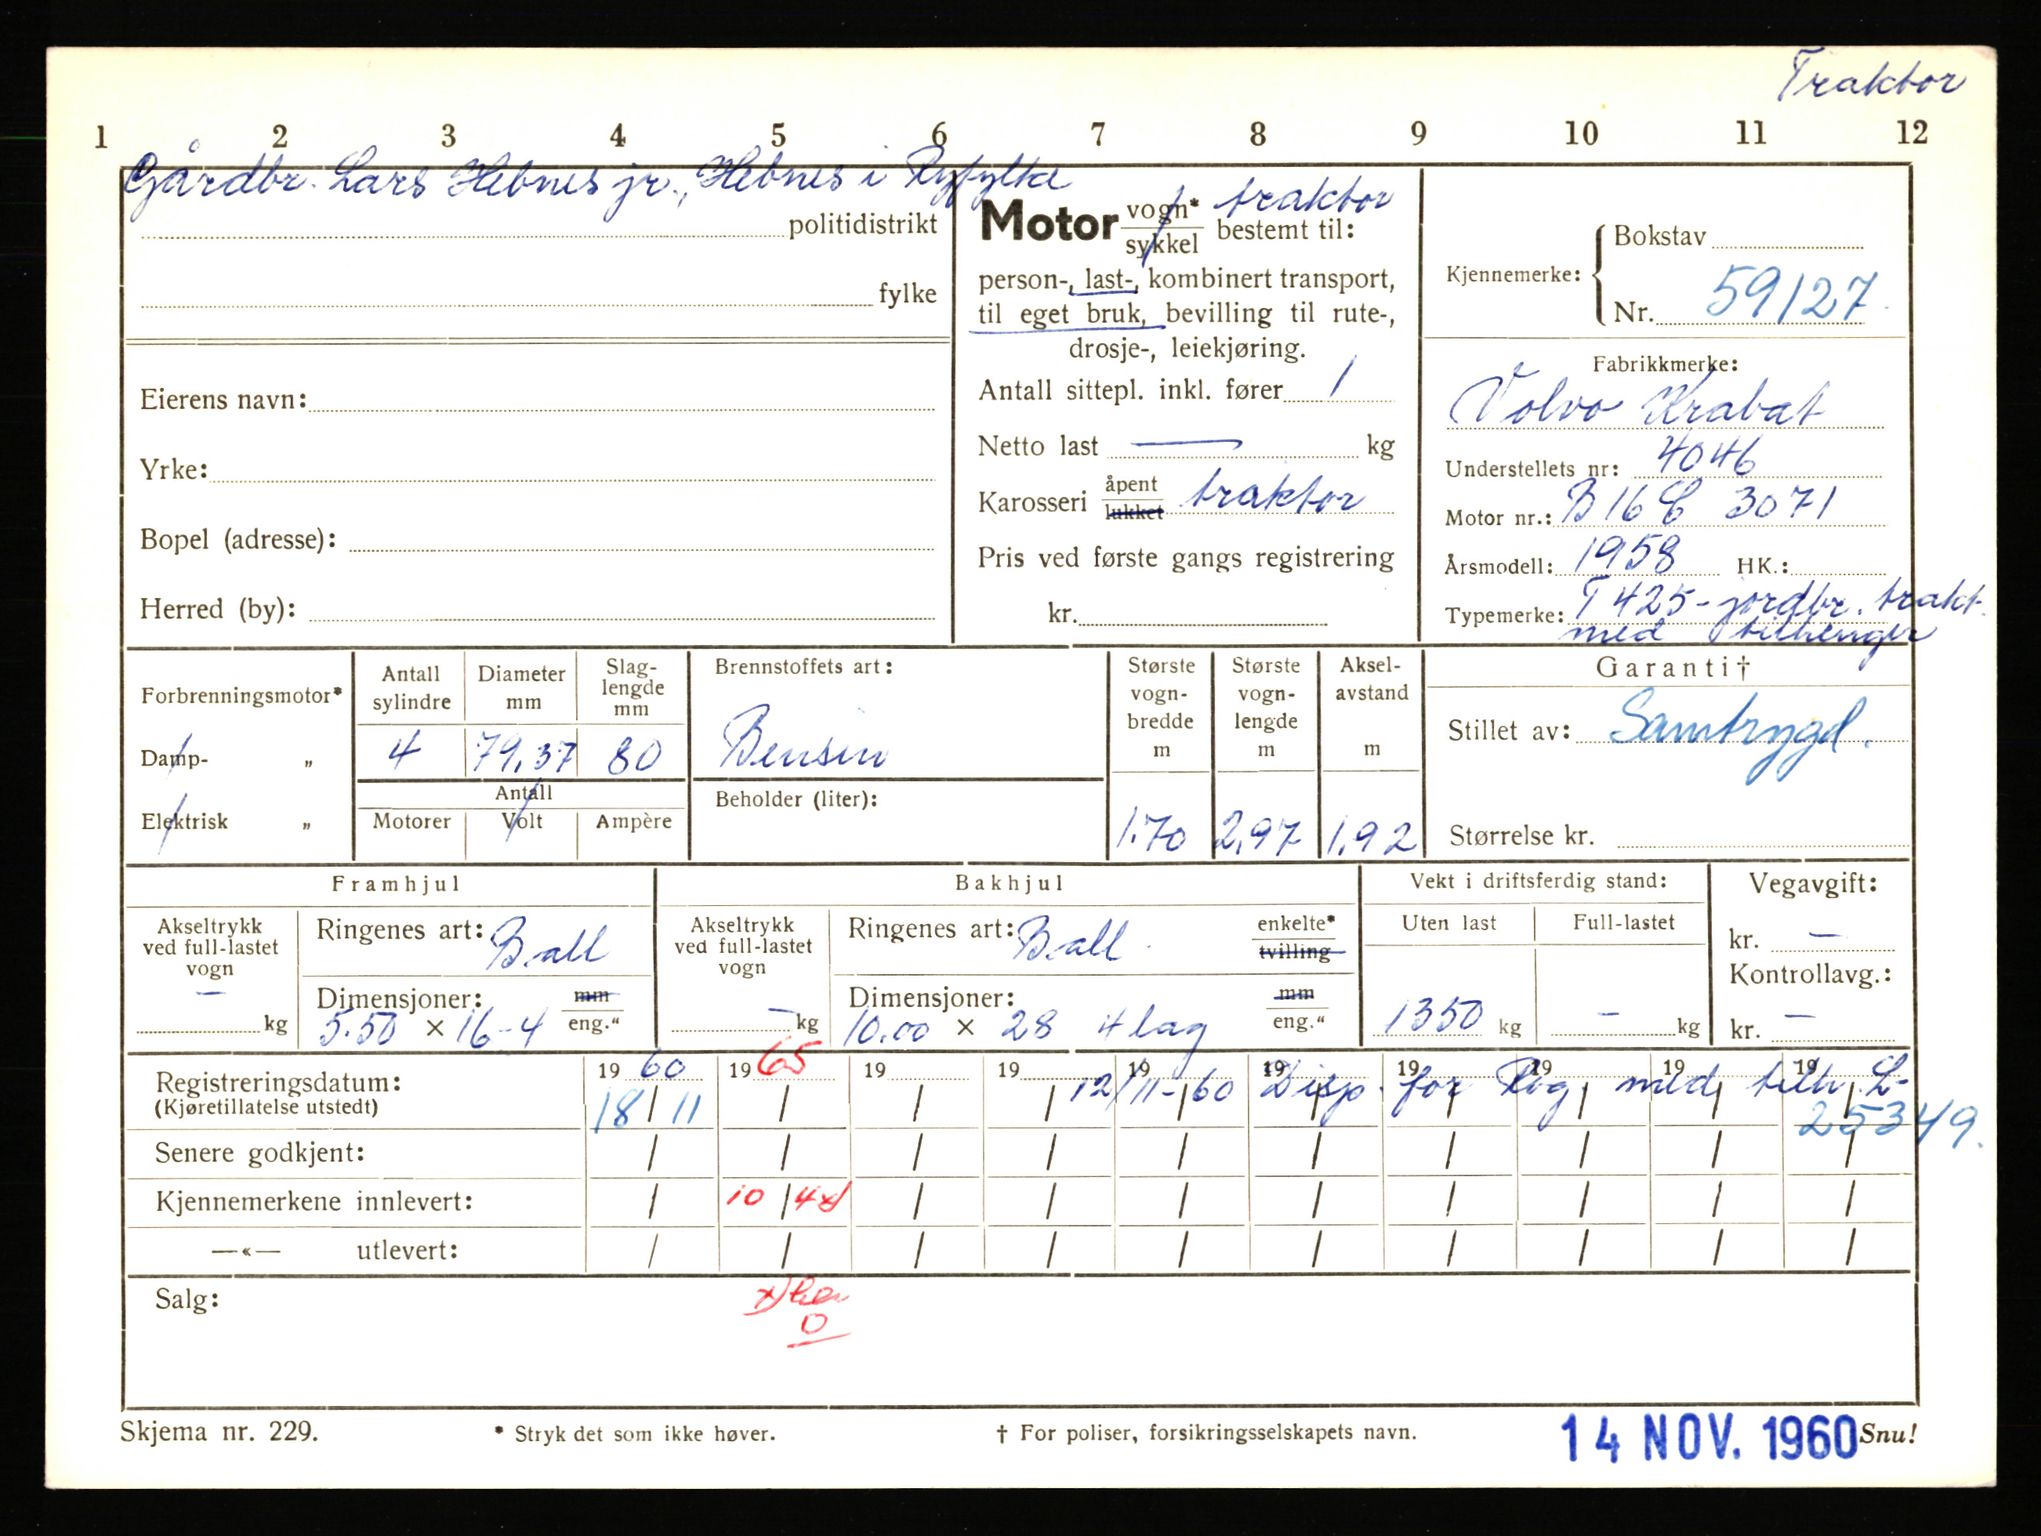 Traktor
1 2 3 4 5 6 7 8 9 10 11 12
Gårdbr. Lars Hebnes jr., Hebnes i Ryfylke
politidistrikt
fylke
Eierens navn:
Yrke:
Bopel (adresse):
Herred (by):
Motor vogn* traktor
sykkel bestemt til:
person-, last-, kombinert transport,
til eget bruk, bevilling til rute-,
drosje-, leiekjøring.
Antall sittepl. inkl. fører 1
Netto last — kg
Karosseri åpent traktor
lukket
Pris ved første gangs registrering
kr.
Kjennemerke: { Bokstav
Nr. 59127
Fabrikkmerke:
Volvo Krabat
Understellets nr: 4046
Motor nr.: B 16 C 3071
Årsmodell: 1958 HK.:
Typemerke: T 425 - jordbr. trakt.
med tilhenger
Forbrenningsmotor*
Damp- „
Elektrisk „
Antall sylindre
4
Diameter mm
79,37
Slag-lengde mm
80
Antall
Motorer Volt Ampère
Brennstoffets art:
Bensin
Beholder (liter):
Største vogn-bredde m
1.70
Største vogn-lengde m
2,97
Aksel-avstand m
1,92
Garanti†
Stillet av: Samtrygd.
Størrelse kr.
Framhjul
Akseltrykk ved full-lastet vogn
— kg
Ringenes art: Ball
Dimensjoner: mm
5.50 × 16 - 4 eng."
Bakhjul
Akseltrykk ved full-lastet vogn
— kg
Ringenes art: Ball. enkelte*
tvilling
Dimensjoner: mm
10.00 × 28 4 lag eng."
Vekt i driftsferdig stand:
Uten last Full-lastet
1350 kg — kg
Vegavgift:
kr. —
Kontrollavg.:
kr. —
Registreringsdatum: 19 60 19 65 19 19 19 19 19 19 19 19
(Kjøretillatelse utstedt) 18/11 / / 12/11-60 Disp. for Rog. med tilh. L-
25349.
Senere godkjent: / / / / / / / / / /
Kjennemerkene innlevert: / 10/4 x) / / / / / / / /
—«— utlevert: / / / / / / / / / /
Salg: x)
0
Skjema nr. 229. * Stryk det som ikke høver. † For poliser, forsikringsselskapets navn. 14 NOV. 1960 Snu!